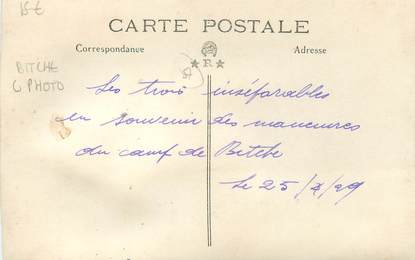 15€
CARTE POSTALE
Correspondance
Adresse
R
BITCHE
6 PHOTO
57
Les trois inséparables
en souvenir des maneuvres
du camp de Bitche
Le 25/ /29